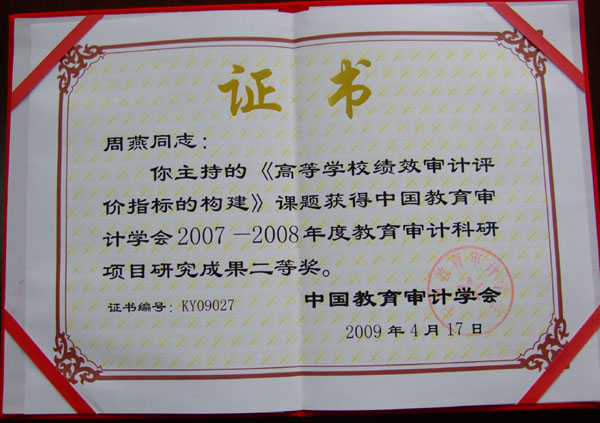 证书
周燕同志：
你主持的《高等学校绩效审计评
价指标的构建》课题获得中国教育审
计学会2007—2008年度教育审计科研
项目研究成果二等奖。
证书编号：KY09027
中国教育审计学会
2009年4月17日